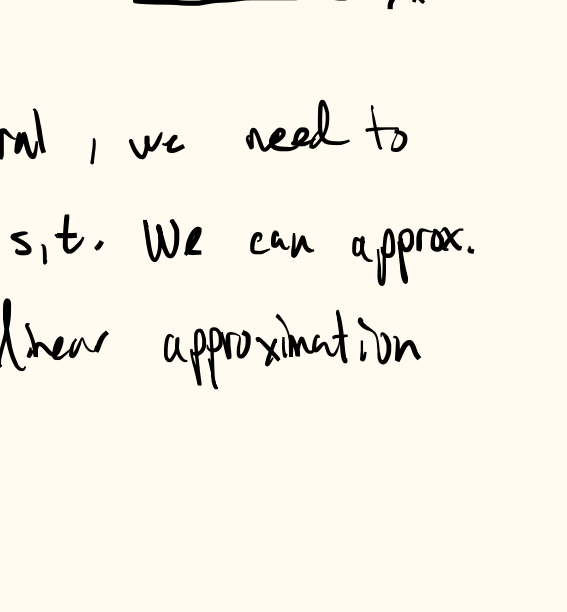 ral, we need to
s,t. We can approx.
linear approximation